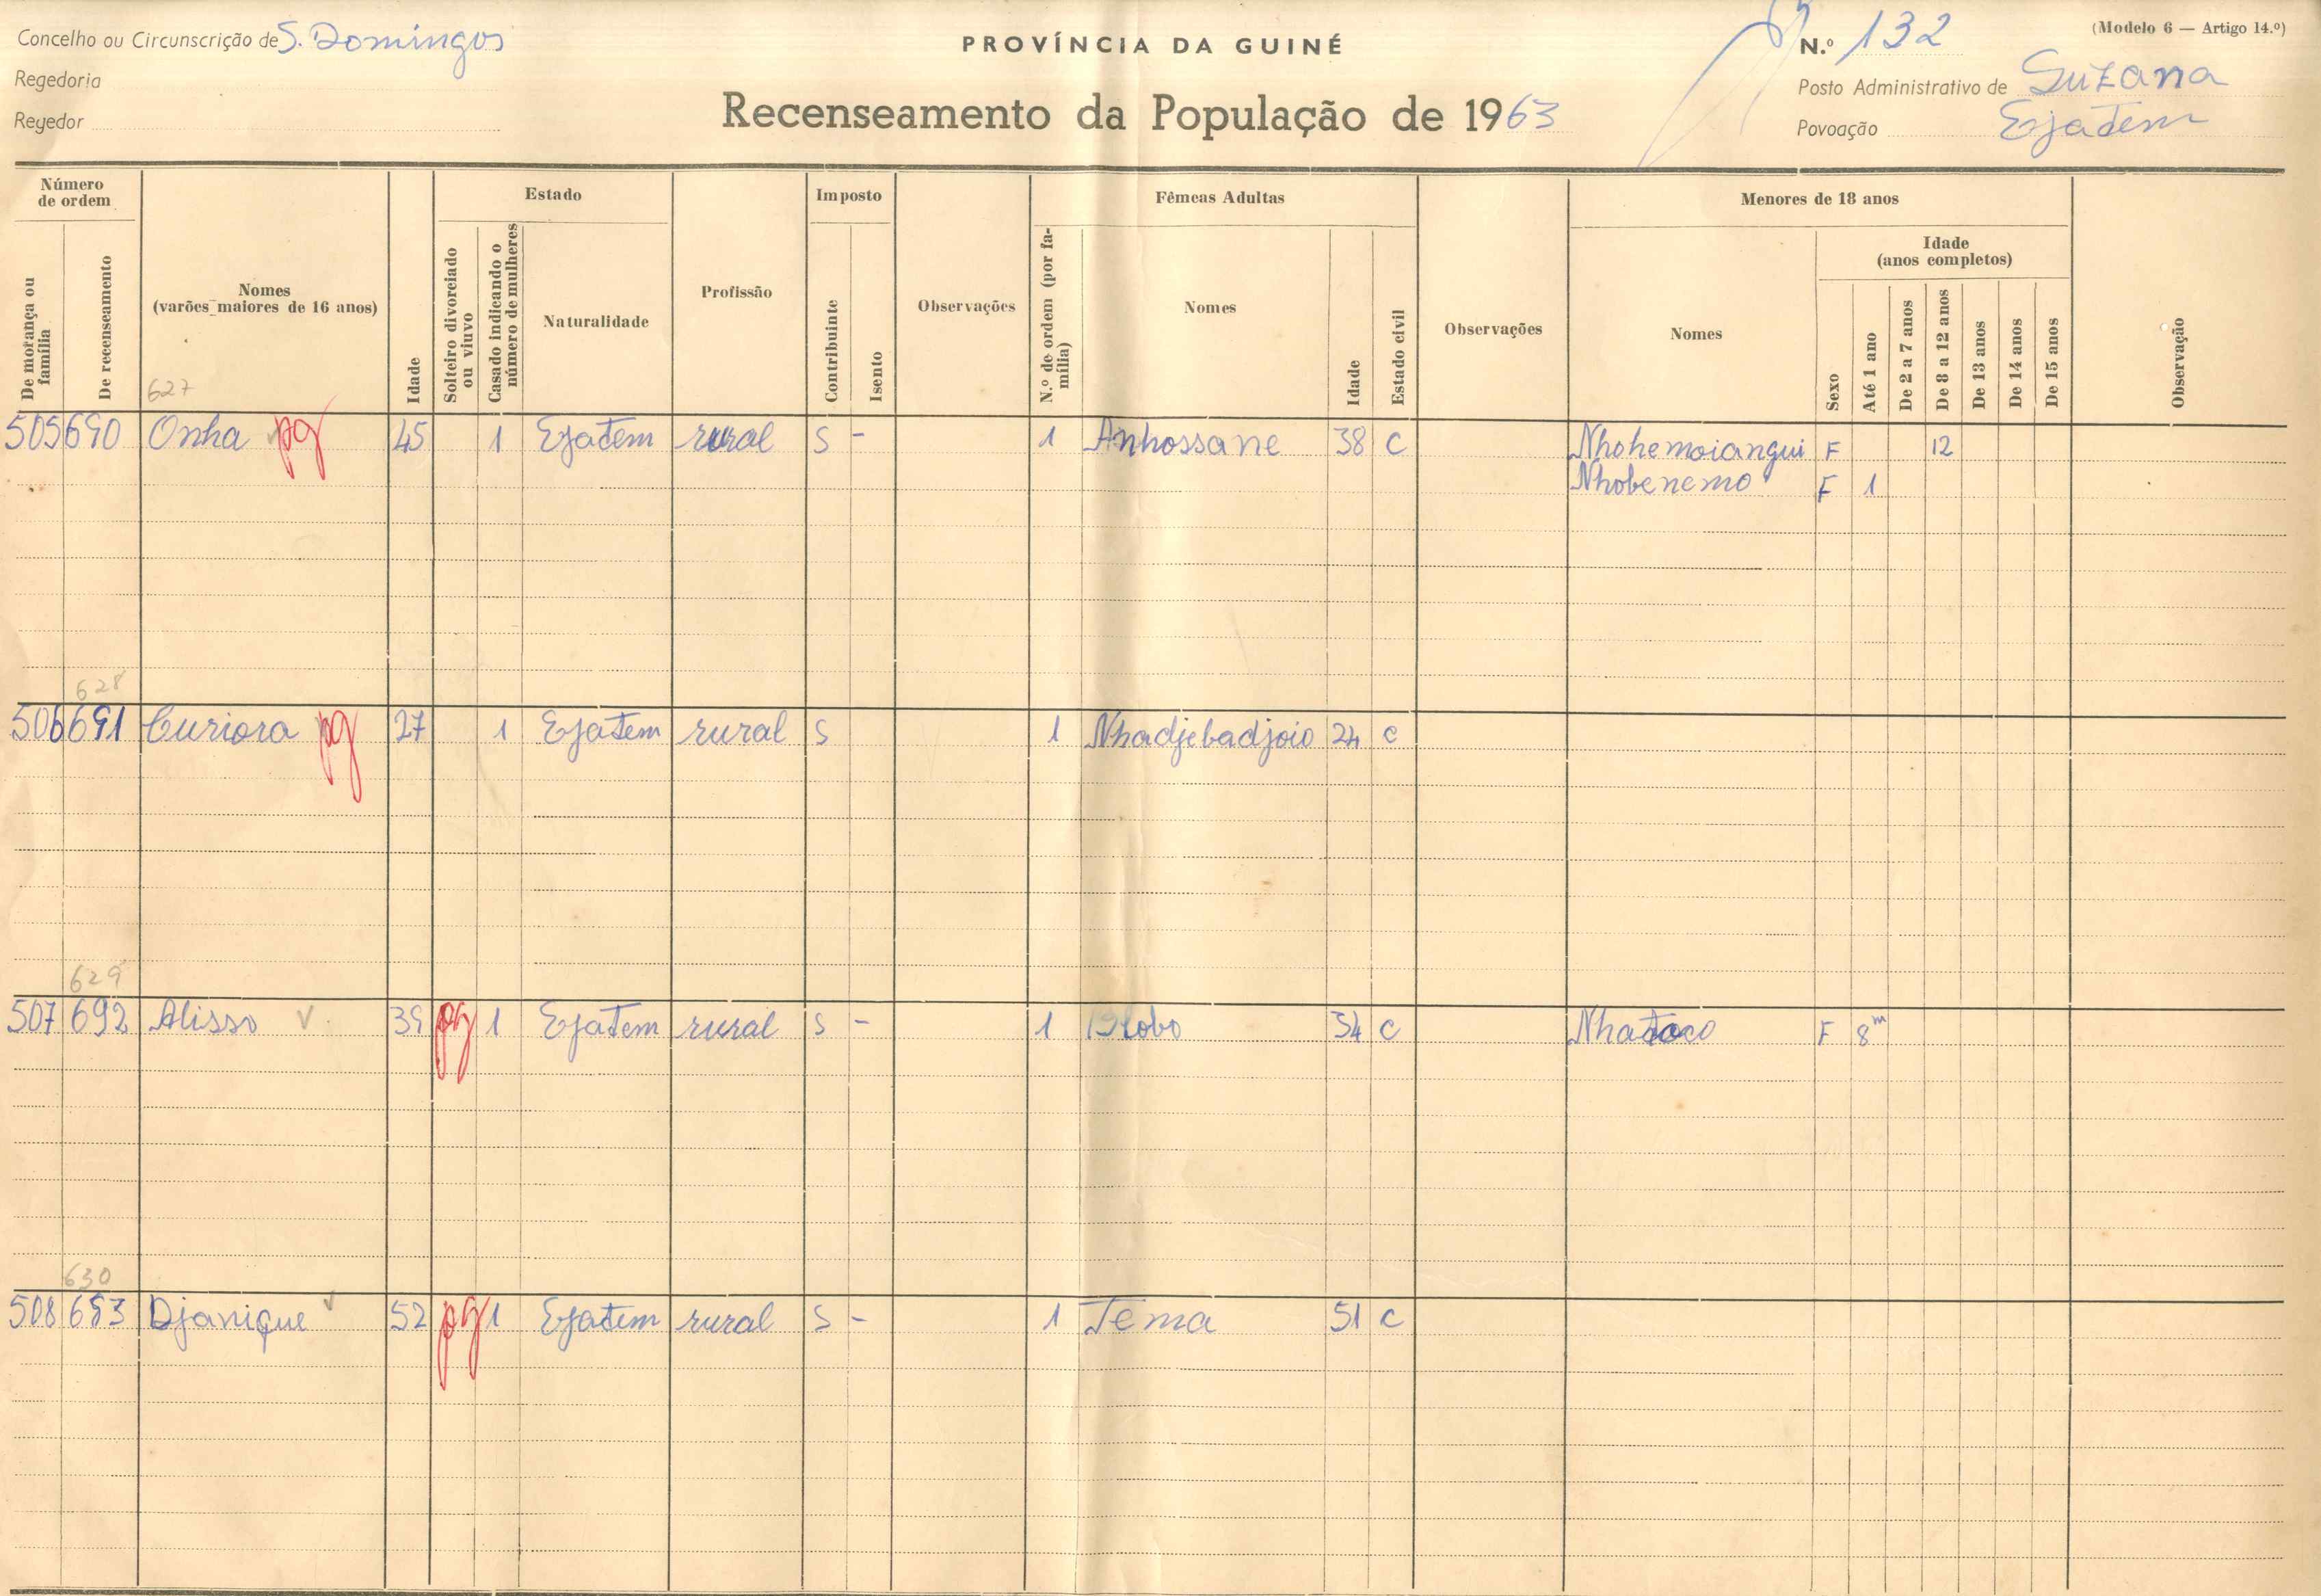 Concelho ou Circunscrição de S. Domingos
Regedoria
Regedor
PROVÍNCIA DA GUINÉ
Recenseamento da População de 1963
(Modelo 6 — Artigo 14.º)
N.º 132
Posto Administrativo de Suzana
Povoação Ejatem
Número de ordem
De morança ou família
De recenseamento
Nomes
(varões maiores de 16 anos)
Idade
Estado
Solteiro divorciado ou viuvo
Casado indicando o número de mulheres
Naturalidade
Profissão
Imposto
Contribuinte
Isento
Observações
Fêmeas Adultas
N.º de ordem (por família)
Nomes
Idade
Estado civil
Observações
Menores de 18 anos
Nomes
Sexo
Idade
(anos completos)
Até 1 ano
De 2 a 7 anos
De 8 a 12 anos
De 13 anos
De 14 anos
De 15 anos
Observação
627
505 690 Onha pg 45 1 Ejatem rural S - 1 Anhossane 38 C Nhohemoiangui F 12
Nhobenemo F 1
628
506 691 Curiora pg 27 1 Ejatem rural S 1 Nhadjebadjoio 24 C
629
507 692 Alisso V 39 pg 1 Ejatem rural S - 1 34 C F 8m
630
508 693 Djanique V 52 pg 1 Ejatem rural S - 1 Tema 51 C